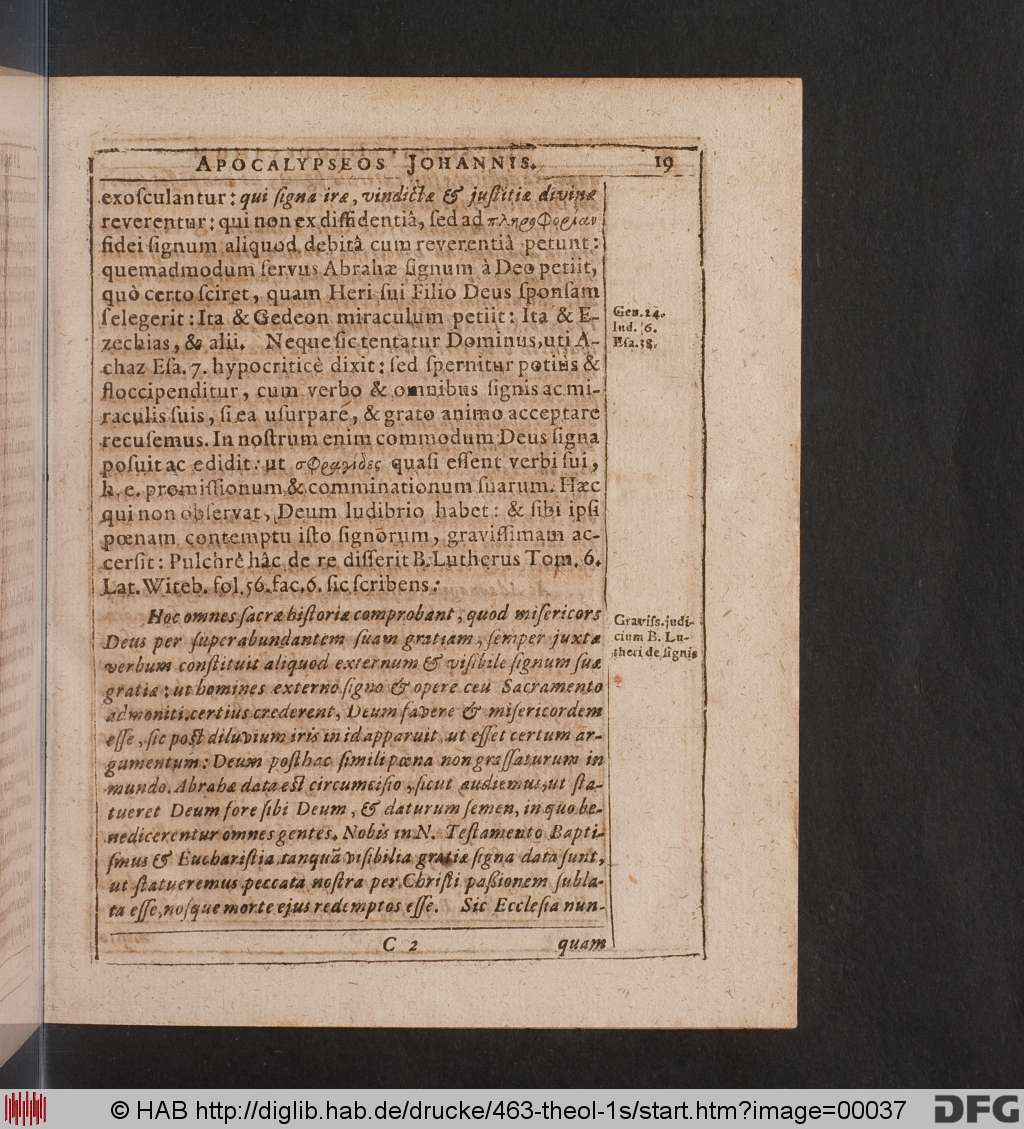 APOCALYPSEOS JOHANNIS. 19
exosculantur: qui signa iræ, vindictæ & justitiæ divinæ
reverentur: qui non ex diffidentiâ, sed ad πληροφορίαν
fidei signum aliquod debitâ cum reverentiâ petunt:
quemadmodum servus Abrahæ signum à Deo petiit,
quò certo sciret, quam Heri sui Filio Deus sponsam
selegerit: Ita & Gedeon miraculum petiit: Ita & E-
zechias, & alii. Neque sic tentatur Dominus, uti A-
chaz Esa. 7. hypocriticè dixit: sed spernitur potius &
floccipenditur, cum verbo & omnibus signis ac mi-
raculis suis, si ea usurpare, & grato animo acceptare
recusemus. In nostrum enim commodum Deus signa
posuit ac edidit: ut σφραγίδες quasi essent verbi sui,
h. e. promissionum & comminationum suarum. Hæc
qui non observat, Deum ludibrio habet: & sibi ipsi
pœnam contemptu isto signorum, gravissimam ac-
cersit: Pulchrè hâc de re disserit B. Lutherus Tom. 6.
Lat. Witeb. fol. 56. fac. 6. sic scribens:
Gen. 24.
Iud. 6.
Esa. 38.
Hoc omnes sacræ historiæ comprobant, quod misericors
Deus per superabundantem suam gratiam, semper juxta
verbum constituit aliquod externum & visibile signum suæ
gratiæ: ut homines externo signo & opere ceu Sacramento
admoniti, certius crederent, Deum favere & misericordem
esse, sic post diluvium iris in id apparuit, ut esset certum ar-
gumentum: Deum posthac simili pœna non grassaturum in
mundo. Abrahæ data est circumcisio, sicut audiemus, ut sta-
tueret Deum fore sibi Deum, & daturum semen, in quo be-
nedicerentur omnes gentes. Nobis in N. Testamento Bapti-
smus & Eucharistia tanquã visibilia gratiæ signa data sunt,
ut statueremus peccata nostra per Christi paßionem subla-
ta esse, nosque morte ejus redemptos esse. Sic Ecclesia nun-
Graviss. judi-
cium B. Lu-
theri de signis
C 2 quam
© HAB http://diglib.hab.de/drucke/463-theol-1s/start.htm?image=00037 DFG